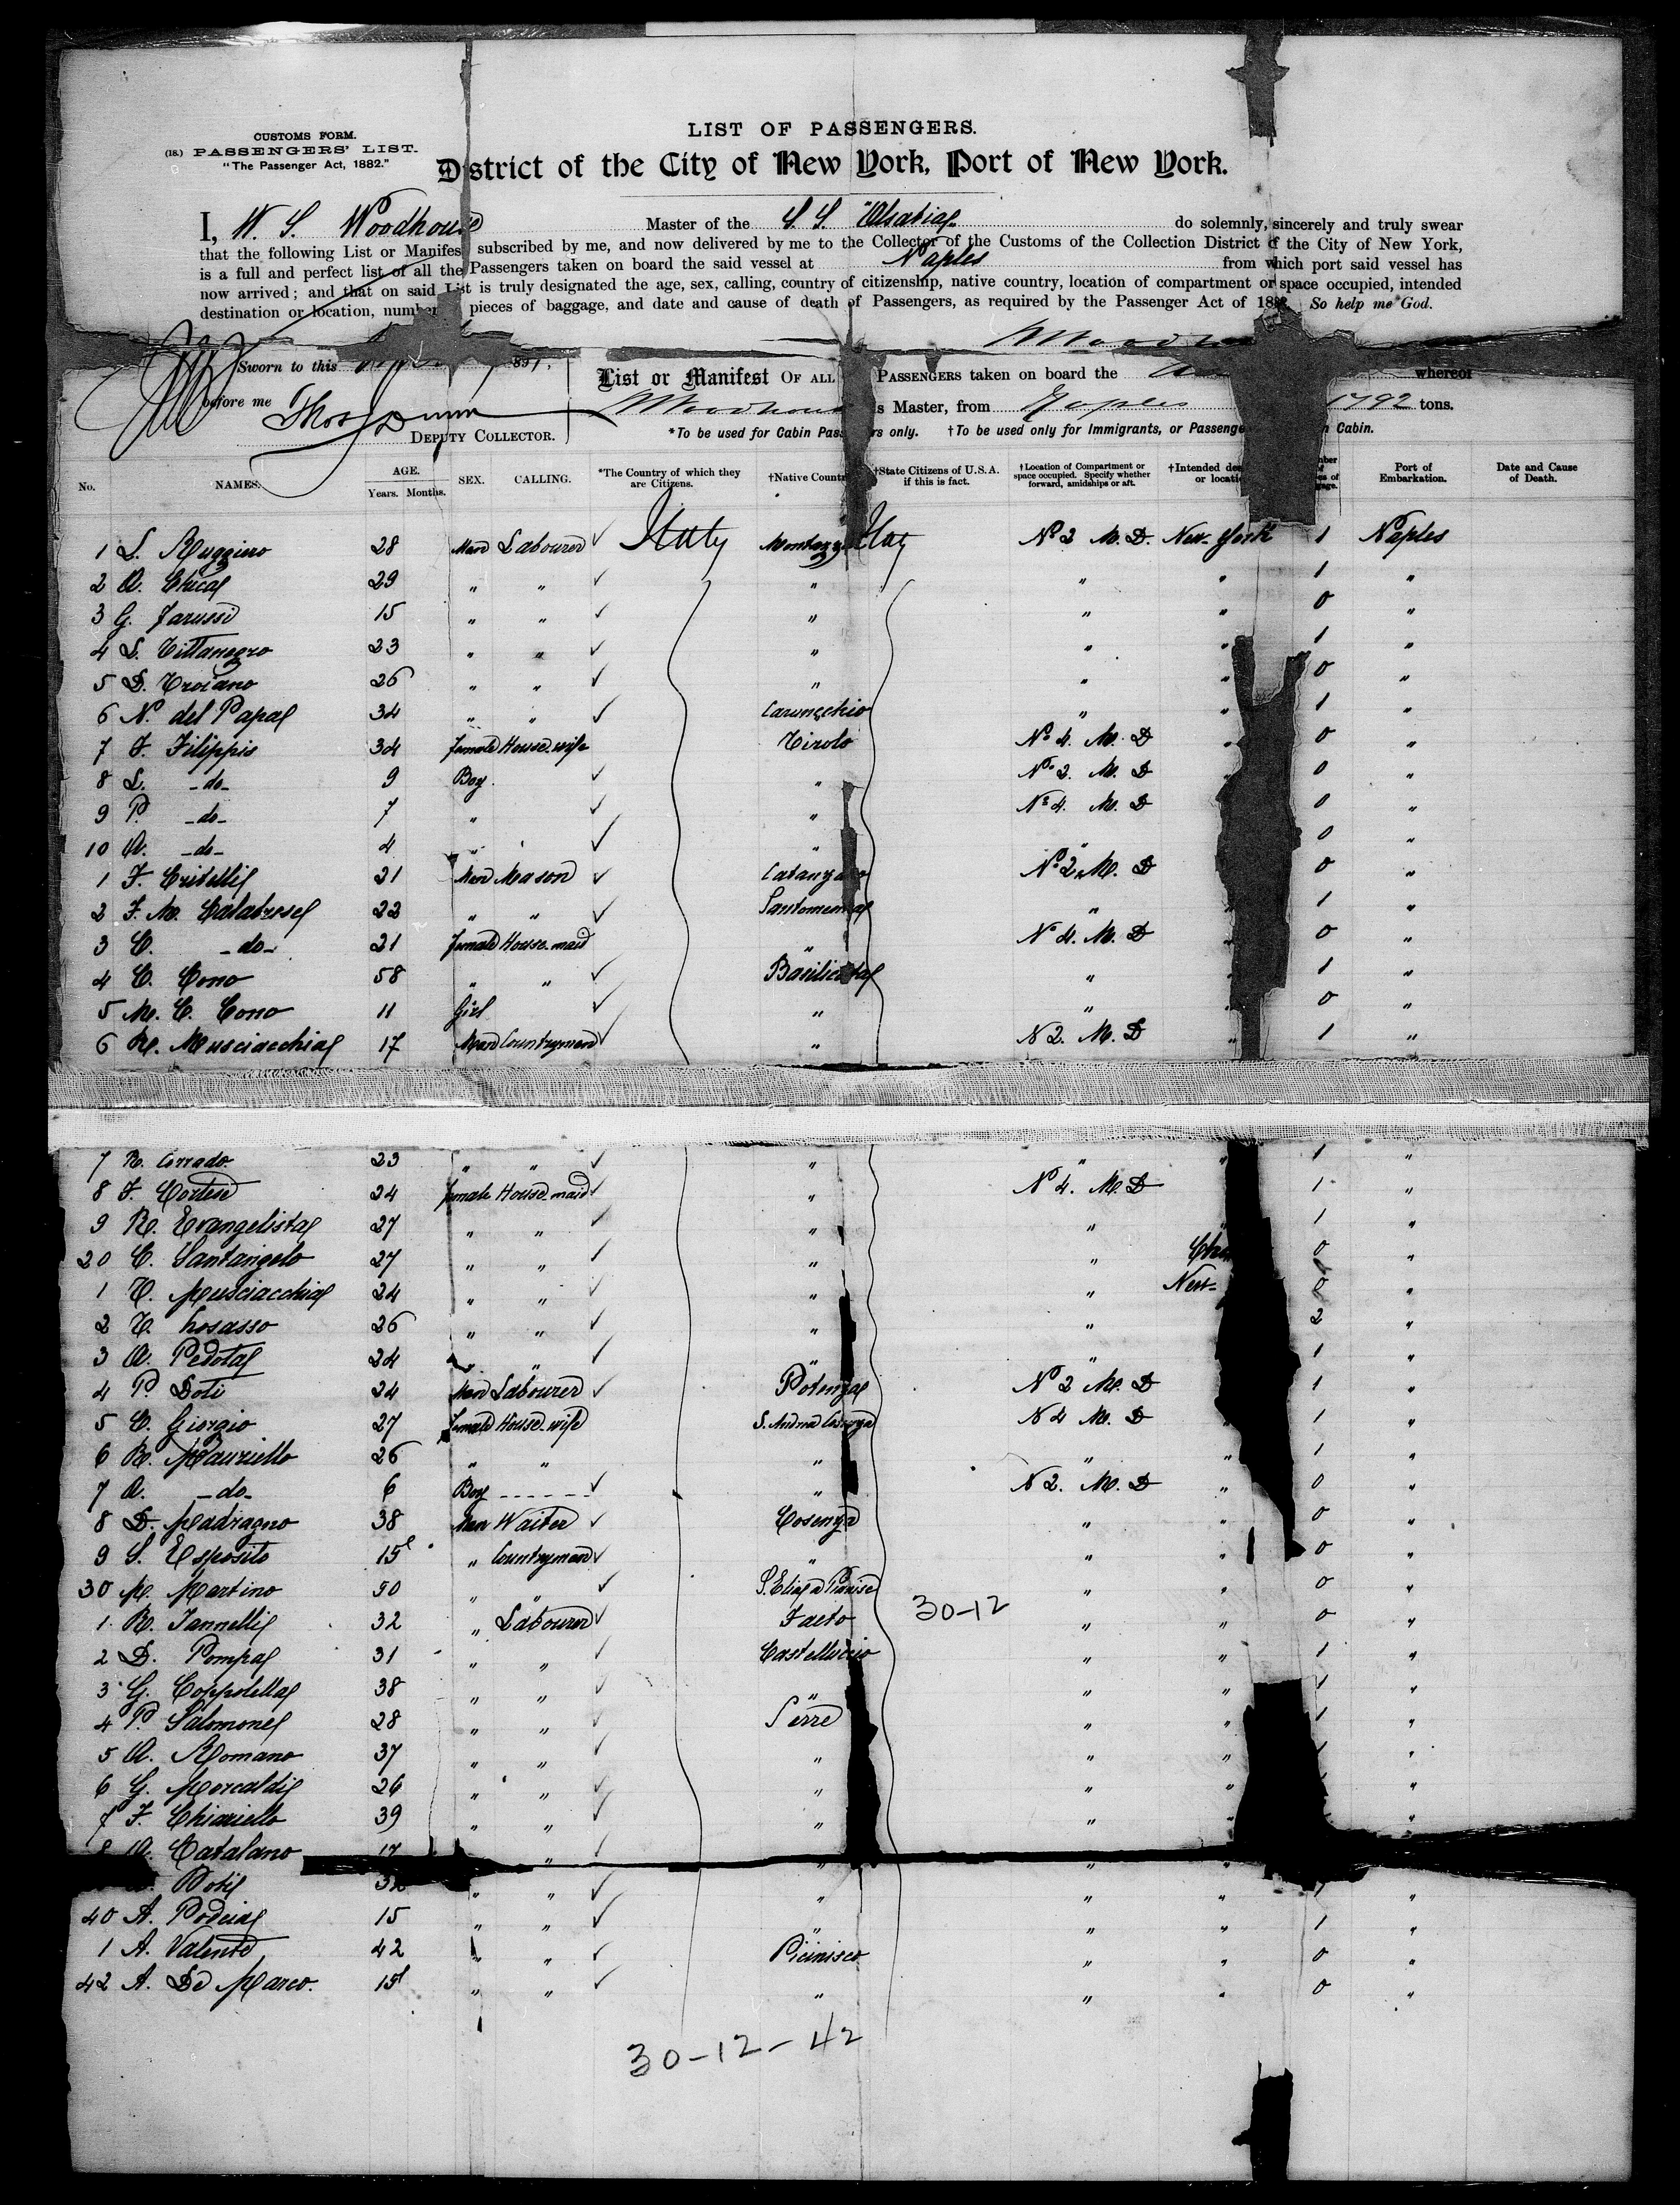 LIST OF PASSENGERS.
CUSTOMS FORM.
(18.) PASSENGERS' LIST.
"The Passenger Act, 1882."
District of the City of New York, Port of New York.
I, W. S. Woodhouse Master of the S. S. "Alsatia" do solemnly, sincerely and truly swear
that the following List or Manifest subscribed by me, and now delivered by me to the Collector of the Customs of the Collection District of the City of New York,
is a full and perfect list of all the Passengers taken on board the said vessel at Naples from which port said vessel has
now arrived; and that on said List is truly designated the age, sex, calling, country of citizenship, native country, location of compartment or space occupied, intended
destination or location, number pieces of baggage, and date and cause of death of Passengers, as required by the Passenger Act of 188 So help me God.
Sworn to this 891,
List or Manifest OF ALL PASSENGERS taken on board the whereof
before me Thos Dunn
Woodhouse is Master, from Naples 1792 tons.
DEPUTY COLLECTOR.
*To be used for Cabin Passengers only. †To be used only for Immigrants, or Passenge n Cabin.
No. NAMES. AGE. Years. Months. SEX. CALLING. *The Country of which they are Citizens. †Native Country †State Citizens of U.S.A. if this is fact. †Location of Compartment or space occupied. Specify whether forward, amidships or aft. †Intended des or locati Port of Embarkation. Date and Cause of Death.
1 L. Ruggiero 28 Man Labourer ✓ Italy Italy No 2 M. D. New-York 1 Naples
2 A. 29 " " ✓ " " " 1 "
3 G. Jarussi 15 " " ✓ " " " 0 "
4 L. Tittanegro 23 " " ✓ " " " 1 "
5 D. Troiano 26 " " ✓ " " " 0 "
6 N. del Papa 34 " " ✓ Carunchio " " 1 "
7 F. Filippis 34 female House-wife Tirolo No 4. M. D " 0 "
8 L. -do- 9 Boy. ✓ " No. 2. M. D " 0 "
9 P. -do- 7 " ✓ " No 4. M. D 0 "
10 A. -do- 4 " ✓ " " 0 "
1 F. Critelli 21 Man Mason ✓ Catanzaro No 2. M. D 0 "
2 F. M. Calabrese 22 " " ✓ Santomenna " " 1 "
3 C. -do- 21 female House-maid " No 4. M. D 0 "
4 C. Cono 58 " " ✓ Basilicata " " 1 "
5 M. C. Cono 11 Girl ✓ " " " 0 "
6 R. Musciacchia 17 Man Countryman ✓ " N 2. M. D " 1 "
7 R. Corrado. 23 " " ✓ " " " 1 "
8 F. Cortese 24 female House-maid ✓ " No 4. M. D 1 "
9 R. Evangelista 27 " " ✓ " " 1 "
20 C. Santangelo 27 " " ✓ " " 0 "
1 C. Musciacchia 24 " " ✓ " " New- 0 "
2 C. Losasso 26 " " ✓ " " 2 "
3 A. Pedota 24 " " ✓ " " 1 "
4 P. Doti 24 Man Labourer ✓ Potenza No 2 M. D 1 "
5 C. Giorgio 27 female House-wife N 4 M. D 1 "
6 R. Mauriello 26 " " " " " 1 "
7 A. -do- 6 Boy ------ ✓ " N 2. M. D " 0 "
8 D. Madragno 38 Man Waiter ✓ Cosenza " " 0 "
9 S. Esposito 15 " Countryman ✓ " " " 0 "
30 M. Martino 50 " " ✓ S. Elia a Pianise " " 0 "
30-12
1 R. Iannelli 32 " Labourer ✓ Faeto " " 0 "
2 D. Pompa 31 " " ✓ Castelluccio " " 1 "
3 G. Coppolella 38 " " ✓ " " " 1 "
4 P. Salomone 28 " " ✓ Serre " " 1 "
5 A. Romano 37 " " ✓ " " " "
6 G. Morcaldi 26 " " ✓ " " " "
7 F. Chiariello 39 " " ✓ " " " "
8 A. Catalano 17 " ✓ " " " "
Poti " " ✓ " " " 1 "
40 A. Podeia 15 " " ✓ " " " 1 "
1 A. Valente 42 " " ✓ Picinisco " " 0 "
42 A. De Marco. 15 " " ✓ " " " 0 "
30-12-42